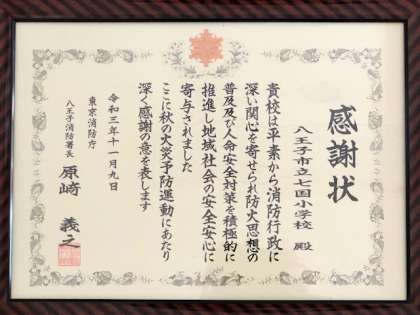 感謝状
八王子市立七国小学校 殿
貴校は平素から消防行政に
深い関心を寄せられ防火思想の
普及及び人命安全対策を積極的に
推進し地域社会の安全安心に
寄与されました
ここに秋の火災予防運動にあたり
深く感謝の意を表します
令和三年十一月九日
東京消防庁
八王子消防署長 原崎 義之